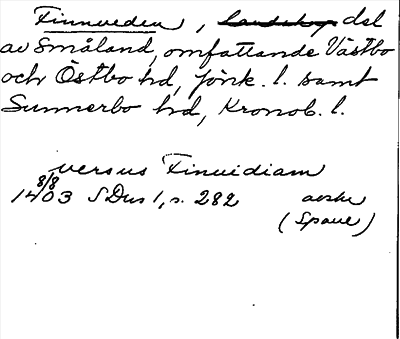 Finnveden, landskap del
av Småland, omfattande Västbo
och Östbo hd, Jönk. l. samt
Sunnerbo hd, Kronob. l.
versus Finuidiam
8/8
1403 SDns 1, s. 282 avskr
(Spaue)